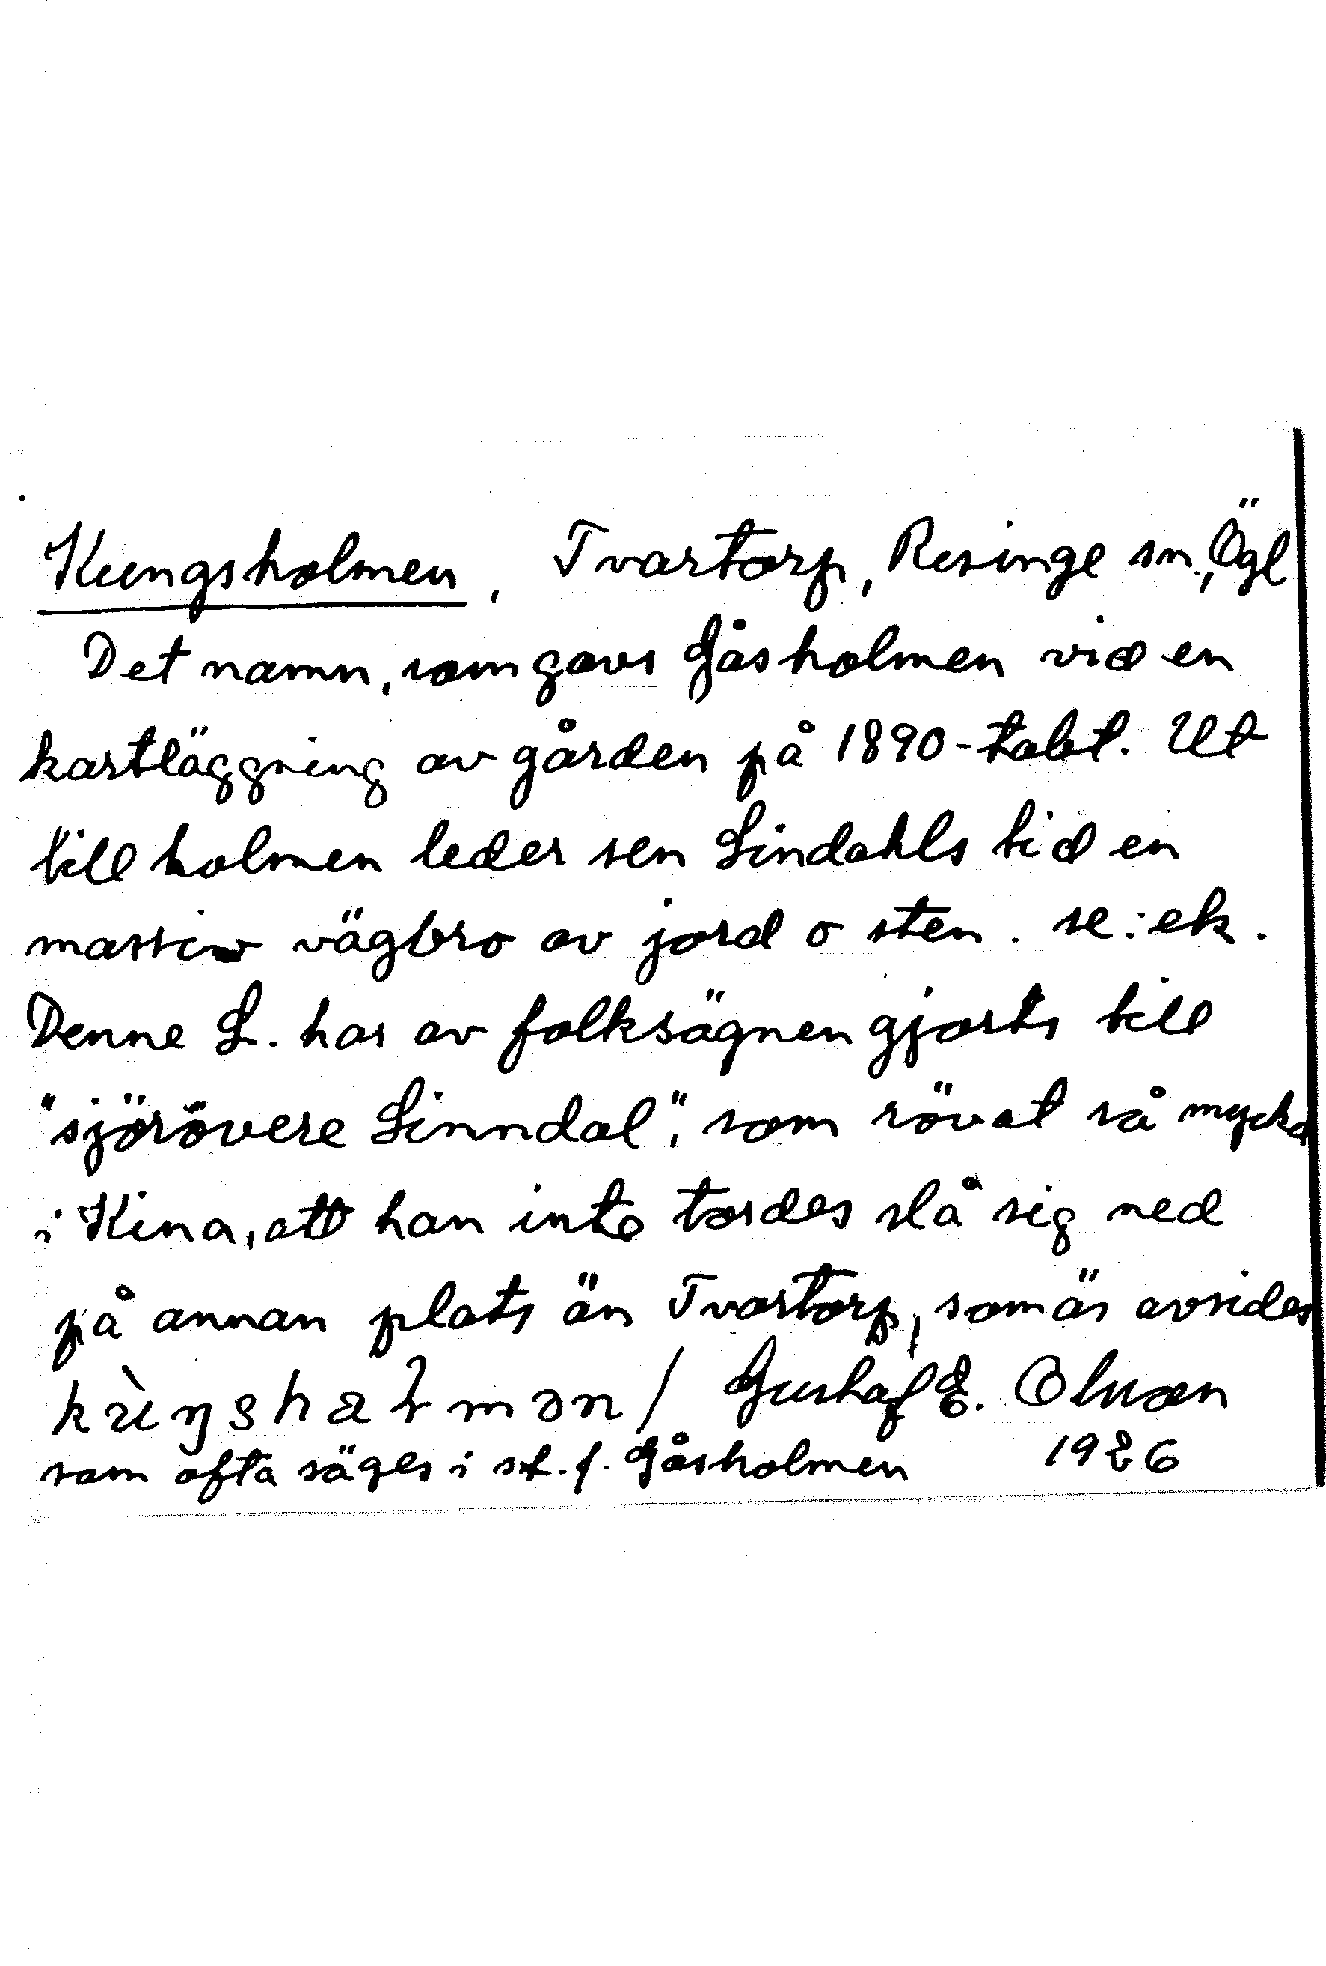 Kungsholmen, Tvartorp, Risinge sn, Ögl
Det namn, som gavs Gåsholmen vid en
kartläggning av gården på 1890-talet. Ut
till holmen leder sen Lindahls tid en
massiv vägbro av jord o sten. se: ek.
Denne L. har av folksägnen gjorts till
"sjörövere Linndal", som rövat så mycket
i Kina, att han inte tordes slå sig ned
på annan plats än Tvartorp, som är avsides
/ Gustaf E. Olsson
som ofta säges i st. f. Gåsholmen 1926